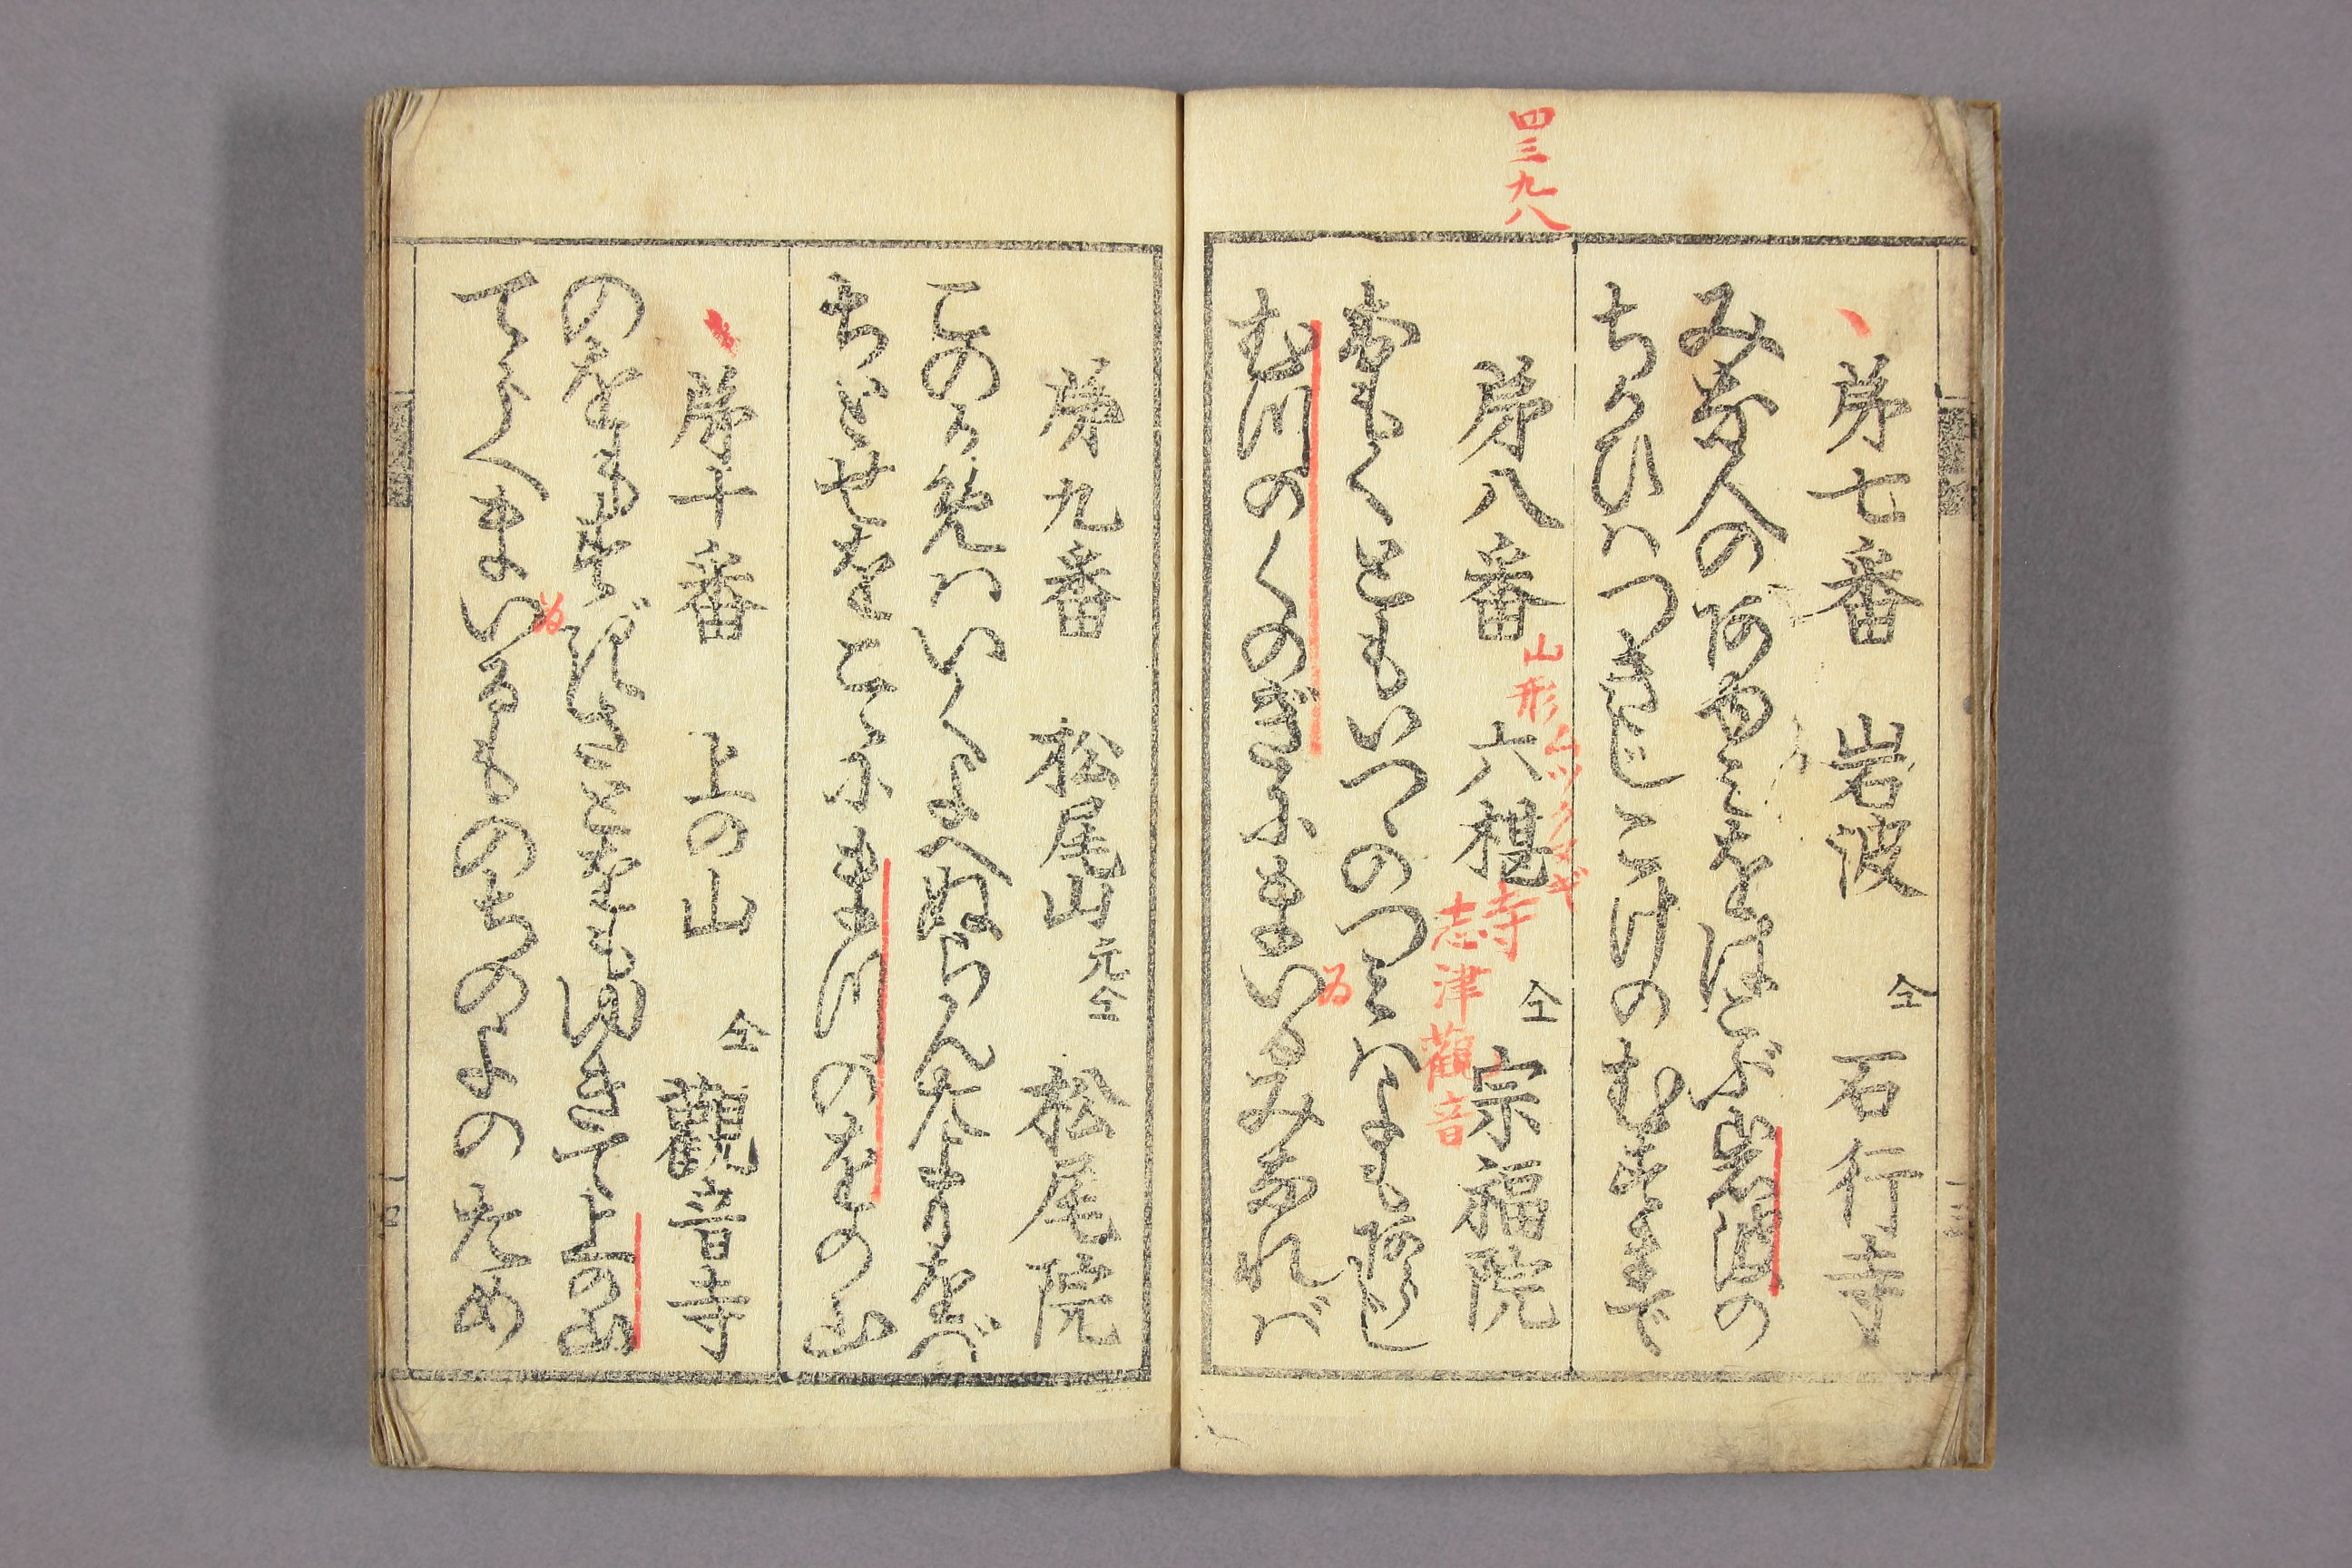 四三九八
第七番　岩波　仝　石行寺
みな人のあゆミをはこぶ岩波の
ちかひハつきじこけのむすまで
第八番　六椹寺　仝　宗福院
山形ムツクヌギ
志津觀音
おもくともいつゝのつミハよもあらじ
むつのくのぎにまいるみなれバ
ゐ
第九番　松尾山　仝　松尾院
このかミハいくよへぬらんたよりをバ
ちとせをこゝにまつのをの山
第十番　上の山　仝　觀音寺
のをもすぎさとをもゆきて上の山
てらへまいるものちのよのため
ゐ